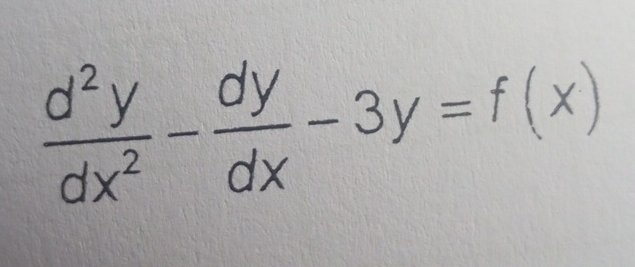 d²y/dx² − dy/dx − 3y = f(x)